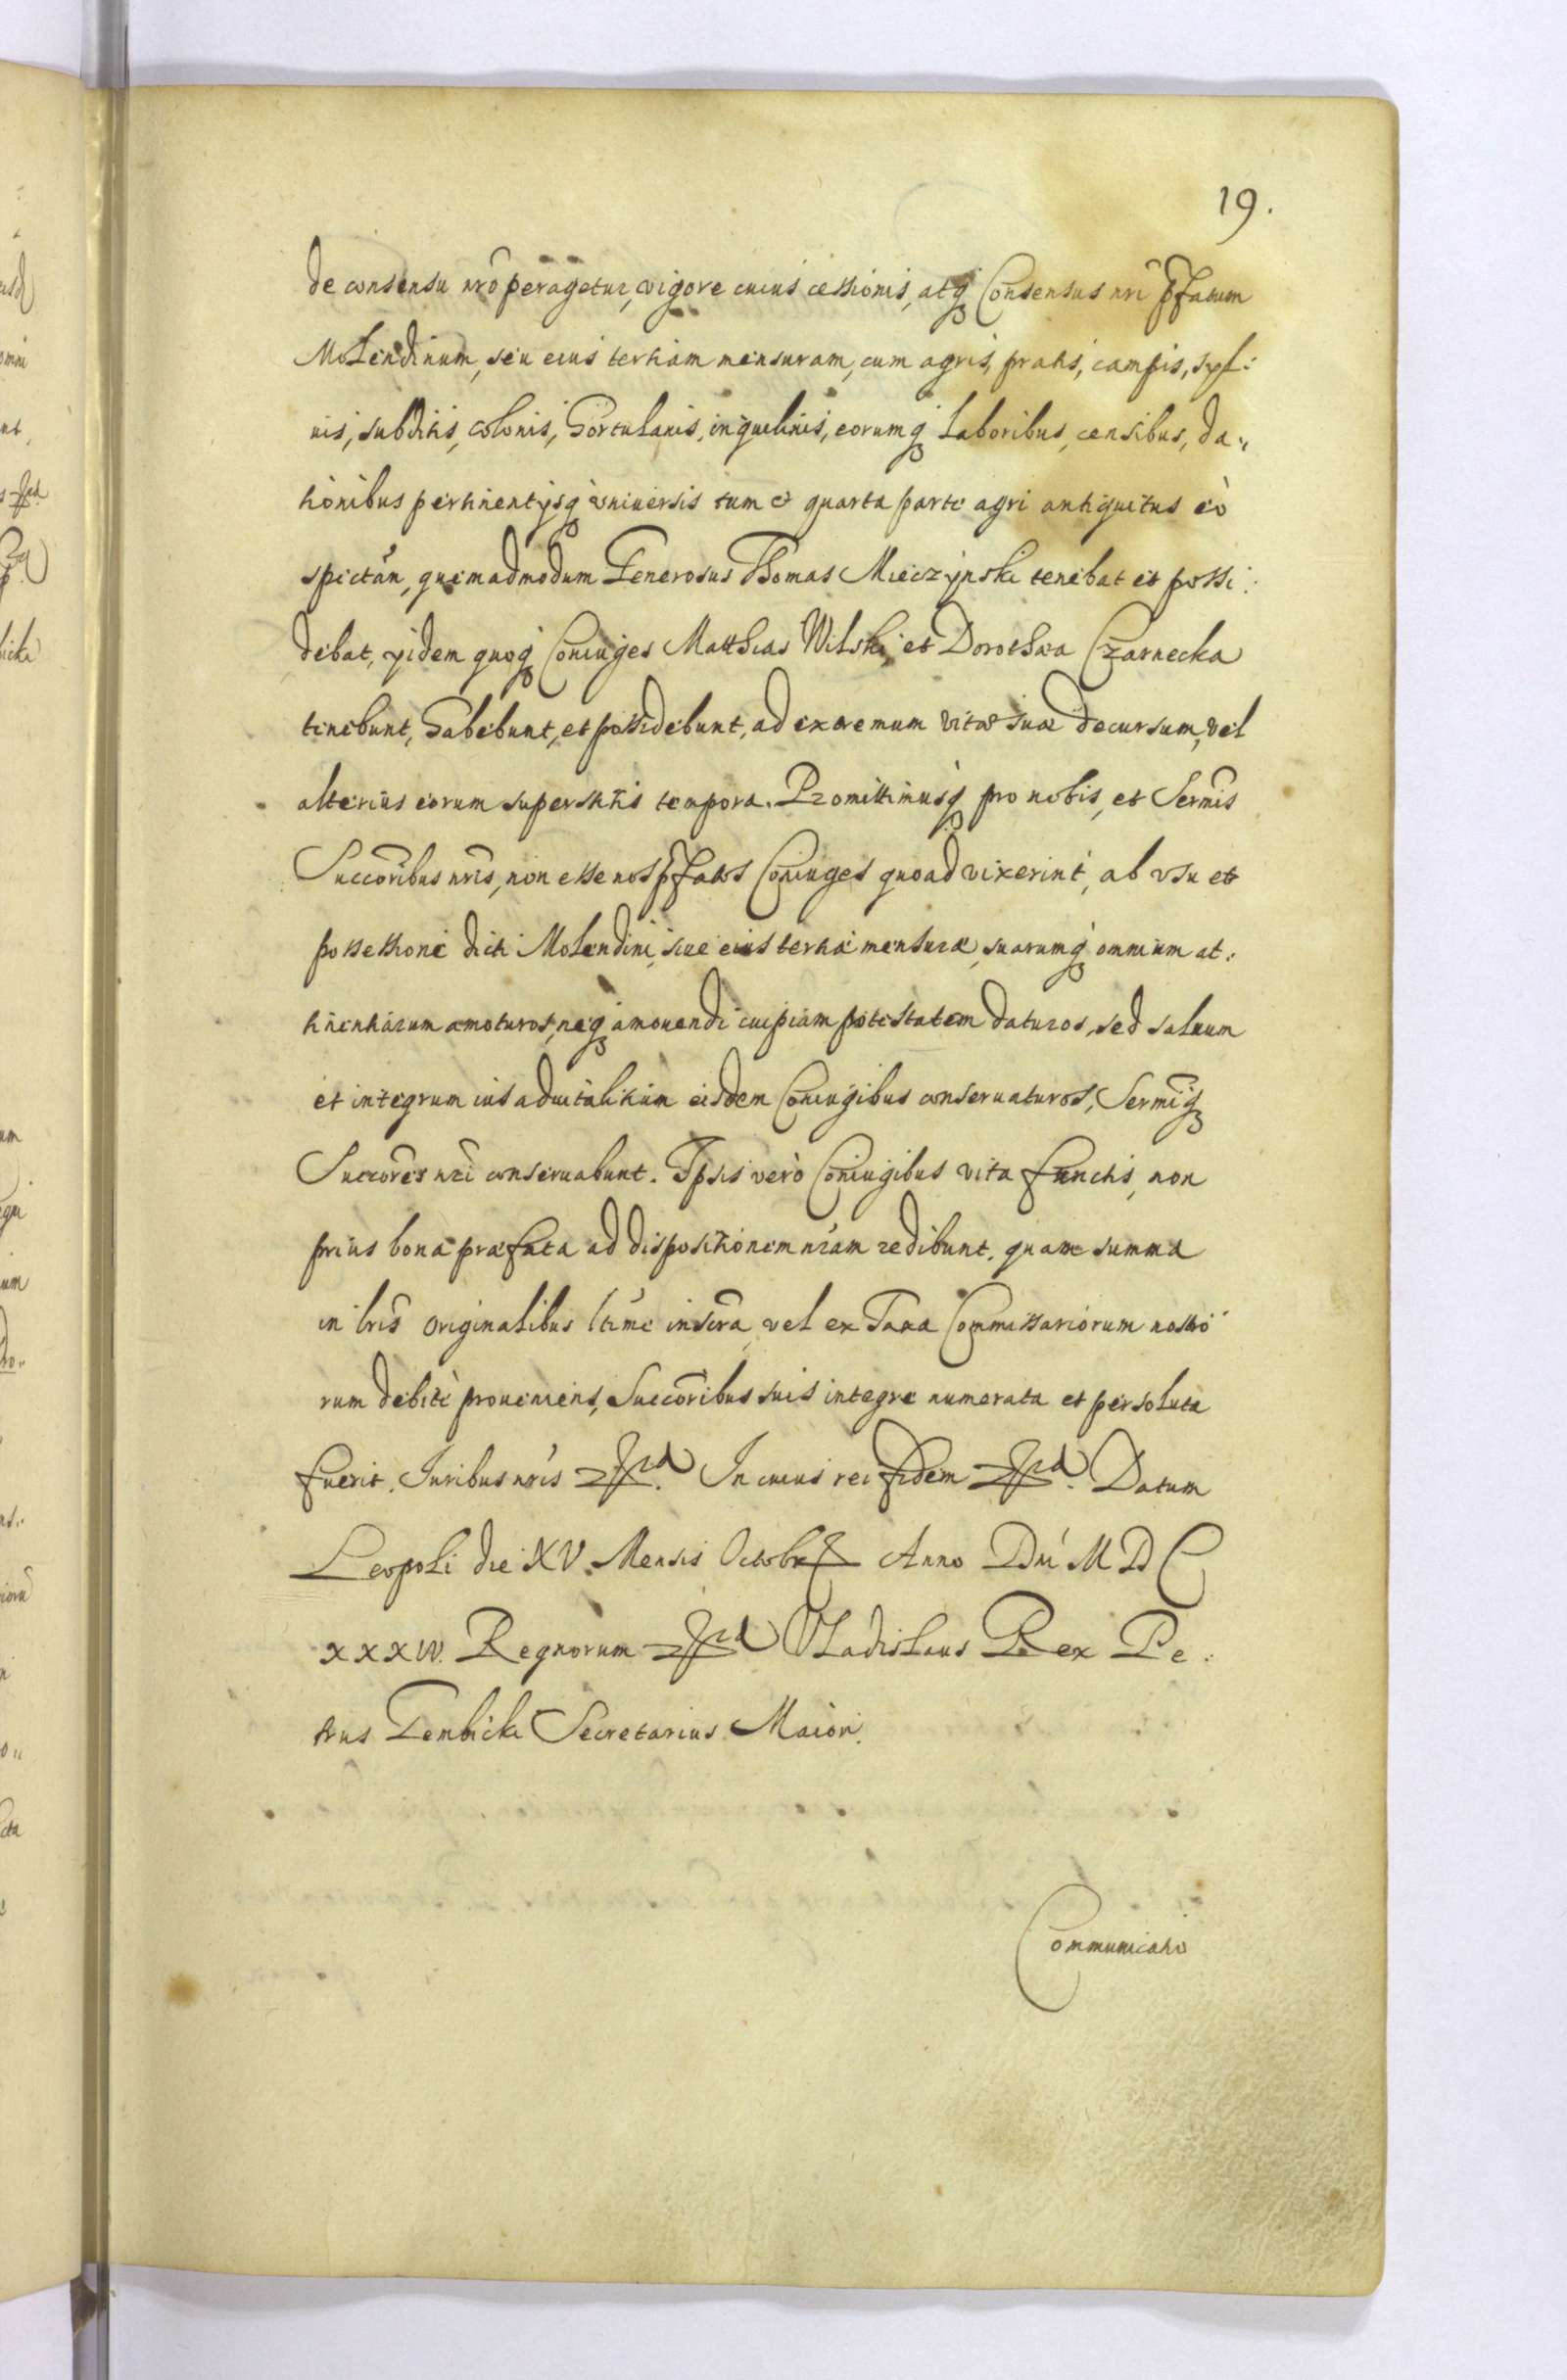 19.
de consensu nrõ peragetur, vigore cuius cessionis, atq₃ Consensus nrĩ pfatum
Molendinum, seu eius tertiam mensuram, cum agris, pratis, campis, syl:
uis, subditis, colonis, Hortulanis, inquilinis, eorumq₃ Laboribus, censibus, da„
tionibus pertinentijsq₃ vniuersis tum et quarta parte agri antiquitus eò
spectañ, quemadmodum Generosus Thomas Mieczynski tenebat et possi:
debat, yidem quoq₃ Coniuges Matthias Wilski et Dorothæa Czarnecka
tenebunt, Habebunt, et possidebunt, ad extremum vitæ suæ decursum, vel
alterius eorum superstitis tempora. Promittimusq₃ pro nobis, et Sermis
Succoribus nris, non esse nos pfatos Coniuges quoad vixerint, ab vsu et
possessione dicti Molendini, siue eius tertiæ mensuræ, suarumq₃ omnium at:
tinentiarum amoturos, neq₃ amouendi cuipiam potestatem daturos, sed saluum
et integrum ius aduitalitium eisdem Coniugibus conseruaturos, Sermiq₃
Succores nri conseruabunt. Ipsis verò Coniugibus vita functis, non
prius bona præfata ad dispositionem nram redibunt, quam summa
in lris originalibus ltime inscra, vel ex Taxa Commissariorum nostro
rum debitè proueniens, Succoribus suis integre numerata et persoluta
fuerit. Iuribus nris In cuius rei fidem Datum
Leopoli die XV. Mensis Octobr Anno Dni M D C
XXXIV. Regnorum Vladislaus Rex Pe:
trus Gembicki Secretarius Maior.
Communicatio